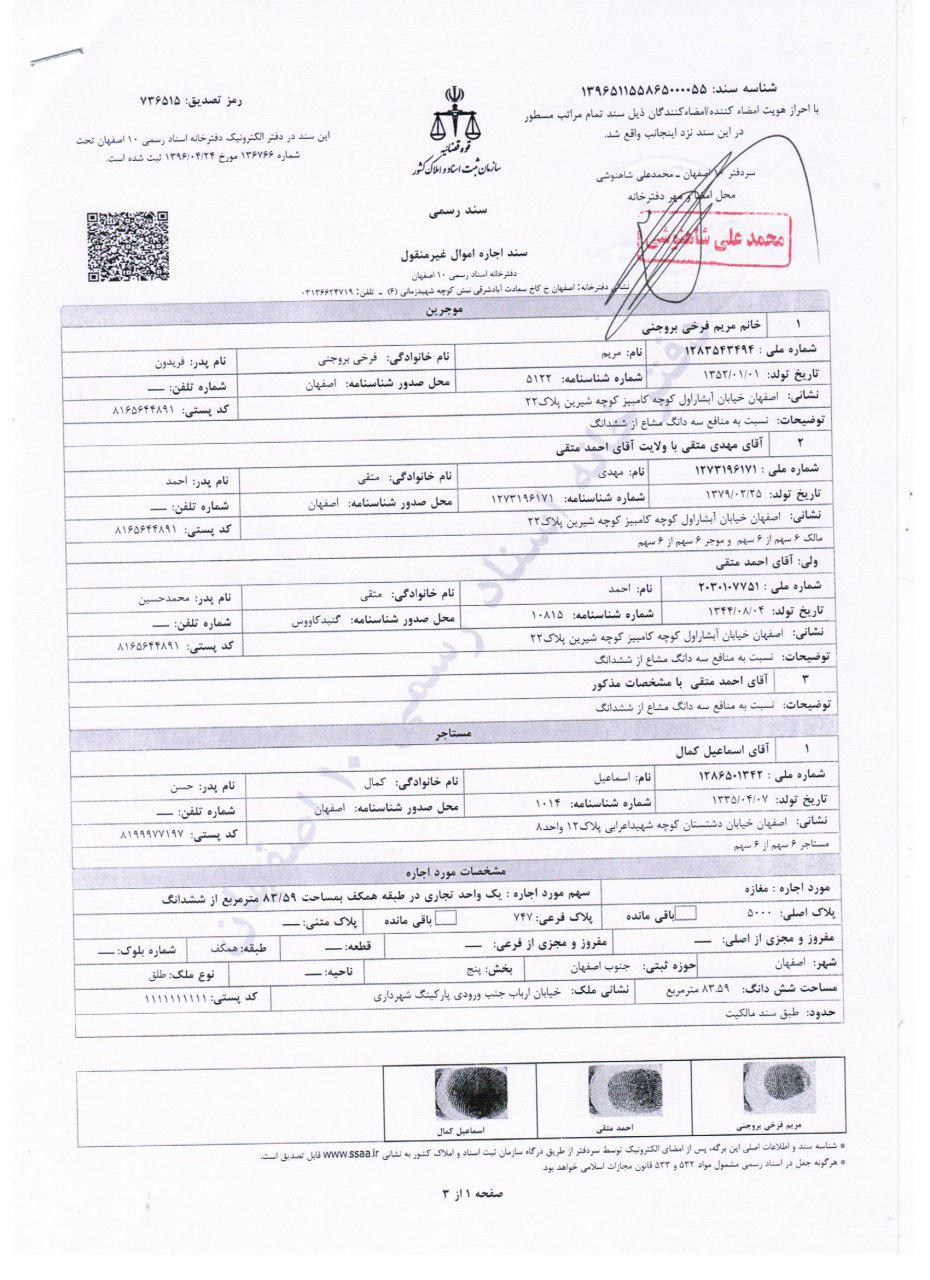 شناسه سند: ۱۳۹۶۵۱۱۵۵۸۶۵۰۰۰۰۵۵
با احراز هویت امضاء کننده/امضاءکنندگان ذیل سند تمام مراتب مسطور
در این سند نزد اینجانب واقع شد.
سردفتر ۱۰ اصفهان ـ محمدعلی شاهنوشی
محل امضا و مهر دفترخانه
محمد علی شاهنوشی
قوه قضائیه
سازمان ثبت اسناد و املاک کشور
سند رسمی
سند اجاره اموال غیرمنقول
دفترخانه اسناد رسمی ۱۰ اصفهان
نشانی دفترخانه: اصفهان خ کاخ سعادت آبادشرقی نبش کوچه شهیدزمانی (۶) ـ تلفن: ۰۳۱۳۶۶۲۴۷۱۹
رمز تصدیق: ۷۳۶۵۱۵
این سند در دفتر الکترونیک دفترخانه اسناد رسمی ۱۰ اصفهان تحت
شماره ۱۳۶۷۶۶ مورخ ۱۳۹۶/۰۴/۲۴ ثبت شده است.
موجرین
۱ خانم مریم فرخی بروجنی
شماره ملی : ۱۲۸۳۵۴۳۴۹۴ نام: مریم نام خانوادگی: فرخی بروجنی نام پدر: فریدون
تاریخ تولد: ۱۳۵۲/۰۱/۰۱ شماره شناسنامه: ۵۱۲۲ محل صدور شناسنامه: اصفهان شماره تلفن: ــــ
نشانی: اصفهان خیابان آبشاراول کوچه کامبیز کوچه شیرین پلاک۲۲ کد پستی: ۸۱۶۵۶۴۴۸۹۱
توضیحات: نسبت به منافع سه دانگ مشاع از ششدانگ
۲ آقای مهدی متقی با ولایت آقای احمد متقی
شماره ملی : ۱۲۷۳۱۹۶۱۷۱ نام: مهدی نام خانوادگی: متقی نام پدر: احمد
تاریخ تولد: ۱۳۷۹/۰۲/۲۵ شماره شناسنامه: ۱۲۷۳۱۹۶۱۷۱ محل صدور شناسنامه: اصفهان شماره تلفن: ــــ
نشانی: اصفهان خیابان آبشاراول کوچه کامبیز کوچه شیرین پلاک۲۲ کد پستی: ۸۱۶۵۶۴۴۸۹۱
مالک ۶ سهم از ۶ سهم و موجر ۶ سهم از ۶ سهم
ولی: آقای احمد متقی
شماره ملی : ۲۰۳۰۱۰۷۷۵۱ نام: احمد نام خانوادگی: متقی نام پدر: محمدحسین
تاریخ تولد: ۱۳۴۴/۰۸/۰۴ شماره شناسنامه: ۱۰۸۱۵ محل صدور شناسنامه: گنبدکاووس شماره تلفن: ــــ
نشانی: اصفهان خیابان آبشاراول کوچه کامبیز کوچه شیرین پلاک۲۲ کد پستی: ۸۱۶۵۶۴۴۸۹۱
توضیحات: نسبت به منافع سه دانگ مشاع از ششدانگ
۳ آقای احمد متقی با مشخصات مذکور
توضیحات: نسبت به منافع سه دانگ مشاع از ششدانگ
مستاجر
۱ آقای اسماعیل کمال
شماره ملی : ۱۲۸۶۵۰۱۳۴۲ نام: اسماعیل نام خانوادگی: کمال نام پدر: حسن
تاریخ تولد: ۱۳۳۵/۰۴/۰۷ شماره شناسنامه: ۱۰۱۴ محل صدور شناسنامه: اصفهان شماره تلفن: ــــ
نشانی: اصفهان خیابان دشتستان کوچه شهیداعرابی پلاک۱۲ واحد۸ کد پستی: ۸۱۹۹۹۷۷۱۹۷
مستاجر ۶ سهم از ۶ سهم
مشخصات مورد اجاره
مورد اجاره : مغازه سهم مورد اجاره : یک واحد تجاری در طبقه همکف بمساحت ۸۳/۵۹ مترمربع از ششدانگ
پلاک اصلی: ۵۰۰۰ باقی مانده پلاک فرعی: ۷۴۷ باقی مانده پلاک متنی: ــــ
مفروز و مجزی از اصلی: ــــ مفروز و مجزی از فرعی: ــــ قطعه: ــــ طبقه: همکف شماره بلوک: ــــ
شهر: اصفهان حوزه ثبتی: جنوب اصفهان بخش: پنج ناحیه: ــــ نوع ملک: طلق
مساحت شش دانگ: ۸۳.۵۹ مترمربع نشانی ملک: خیابان ارباب جنب ورودی پارکینگ شهرداری کد پستی: ۱۱۱۱۱۱۱۱۱۱
حدود: طبق سند مالکیت
مریم فرخی بروجنی احمد متقی اسماعیل کمال
* شناسه سند و اطلاعات اصلی این برگه، پس از امضای الکترونیک توسط سردفتر از طریق درگاه سازمان ثبت اسناد و املاک کشور به نشانی www.ssaa.ir قابل تصدیق است.
* هرگونه جعل در اسناد رسمی مشمول مواد ۵۳۲ و ۵۳۳ قانون مجازات اسلامی خواهد بود.
صفحه ۱ از ۳
دفترخانه اسناد رسمی ۱۰ اصفهان